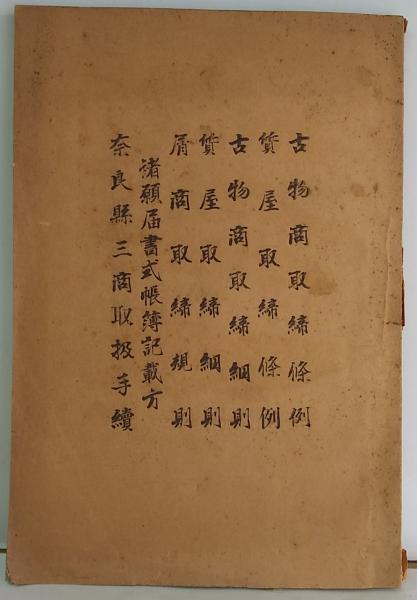 古物商取締條例
質屋取締條例
古物商取締細則
質屋取締細則
屑商取締規則
諸願届書式帳簿記載方
奈良縣三商取扱手續